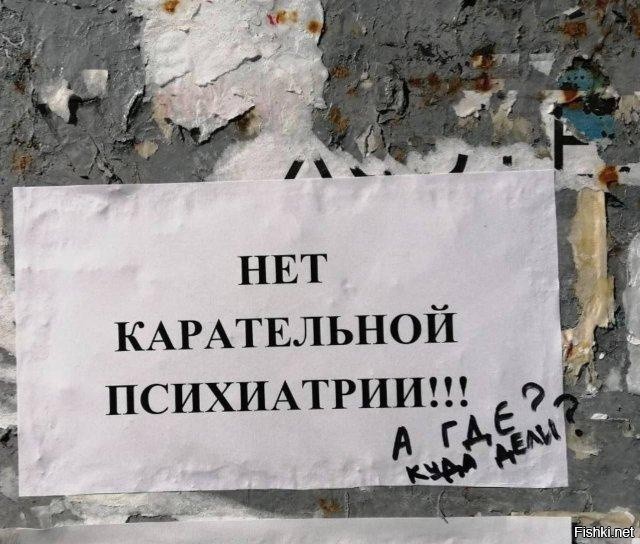 НЕТ
КАРАТЕЛЬНОЙ
ПСИХИАТРИИ!!!
А ГДЕ?
КУДА ДЕЛИ?
Fishki.net